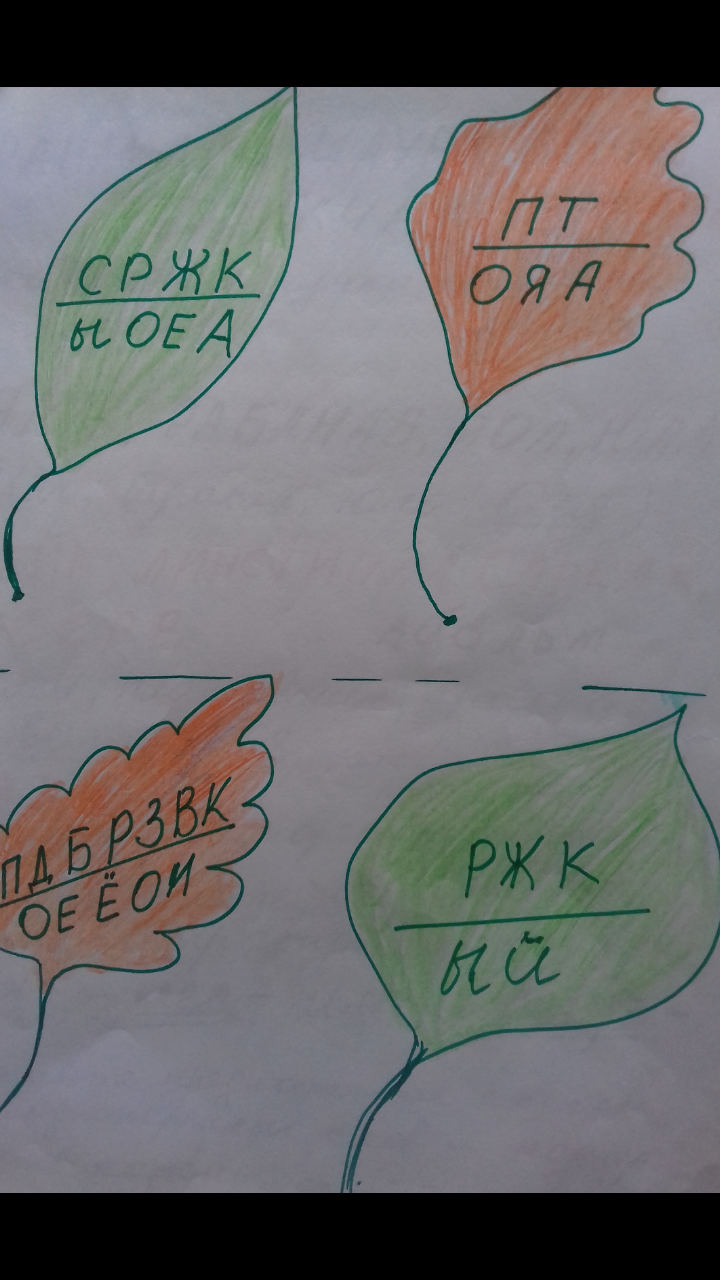 СРЖК
ЫОЕА
ПТ
ОЯА
ПДБРЗВК
ОЕЁОИ
РЖК
ЫЙ